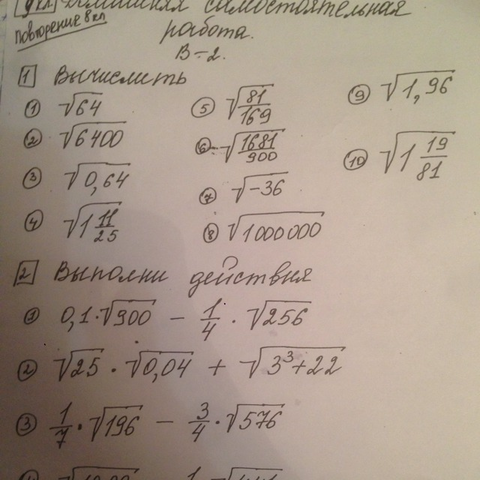 9 кл. Домашняя самостоятельная
Повторение 8 кл
работа.
В-2.
1 Вычислить
① √64
② √6400
③ √0,64
④ √(1 11/25)
⑤ √(81/169)
⑥ -√(1681/900)
⑦ √-36
⑧ √1000000
⑨ √1,96
⑩ √(1 19/81)
2 Выполни действия
① 0,1·√900 - 1/4 · √256
② √25 · √0,04 + √(3³+22)
③ 1/7 · √196 - 3/4 · √576